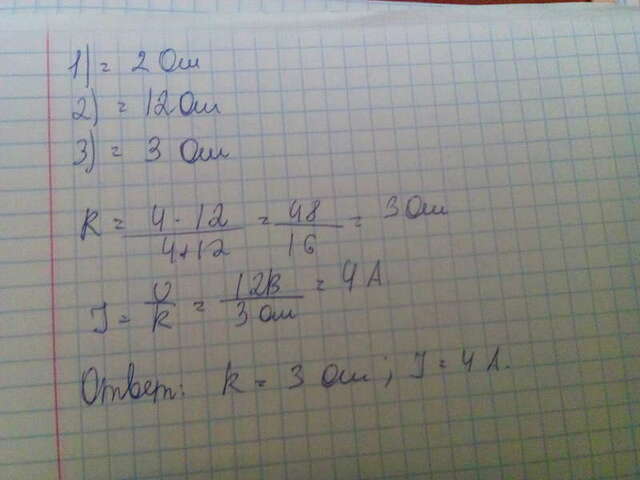 1) = 2 Ом
2) = 12 Ом
3) = 3 Ом
R = 4 · 12 / 4+12 = 48 / 16 = 3 Ом
J = U / R = 12В / 3 Ом = 4 А
Ответ: R = 3 Ом; J = 4 А.